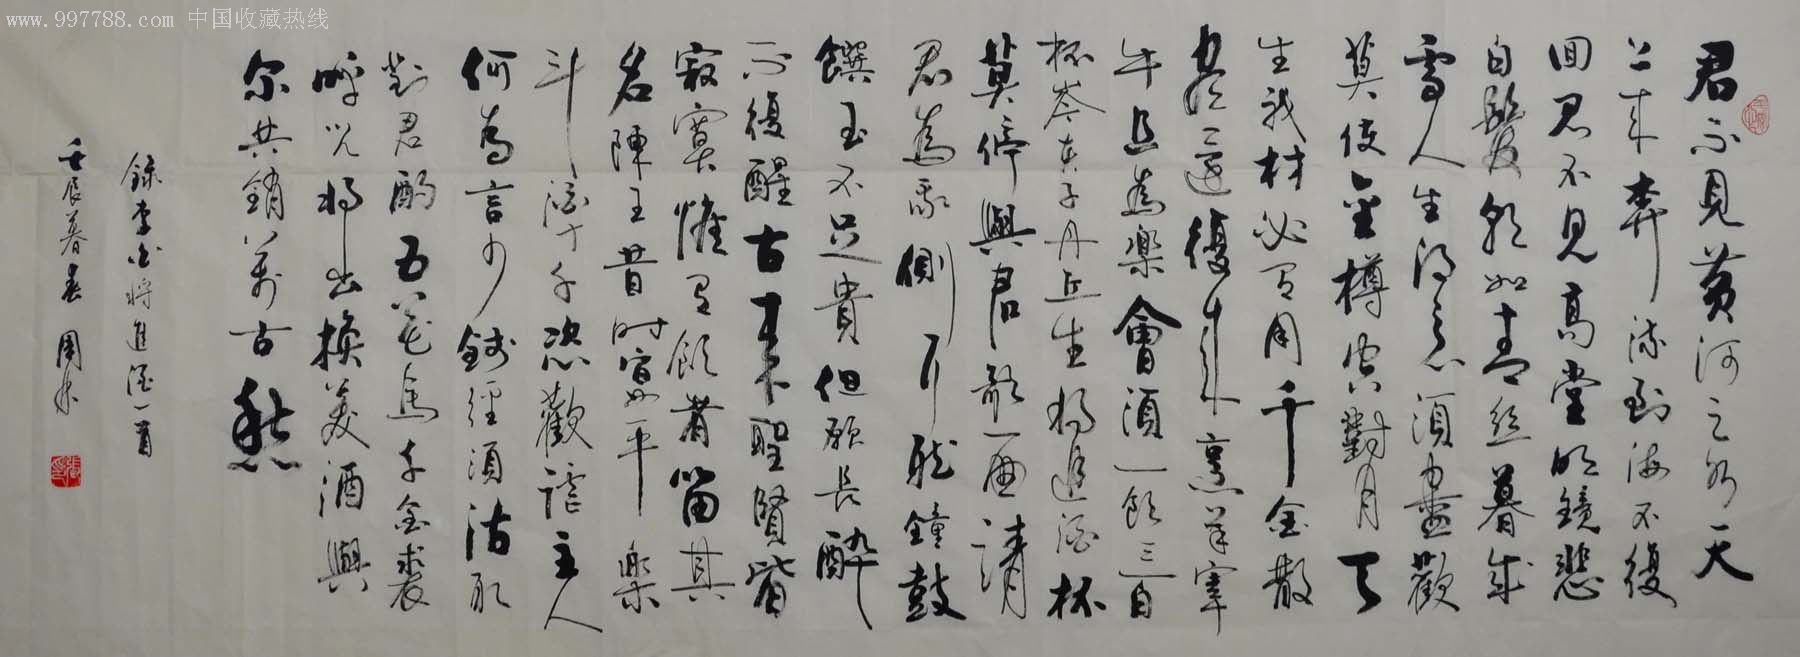 www.997788.com 中国收藏热线
君不見黄河之水天
上来奔流到海不復
回君不見高堂明鏡悲
白髮朝如青丝暮成
雪人生得意須盡歡
莫使金樽空對月天
生我材必有用千金散
盡還復来烹羊宰
牛且為樂會須一飲三百
杯岑夫子丹丘生将進酒杯
莫停與君歌一曲請
君為我側耳聽鐘鼓
饌玉不足貴但願長醉
不復醒古来聖賢皆
寂寞惟有飲者留其
名陳王昔時宴平樂
斗酒十千恣歡謔主人
何為言少錢經須沽取
對君酌五花馬千金裘
呼児将出换美酒與
尔共銷萬古愁
録李白將進酒一首
壬辰暮春 周